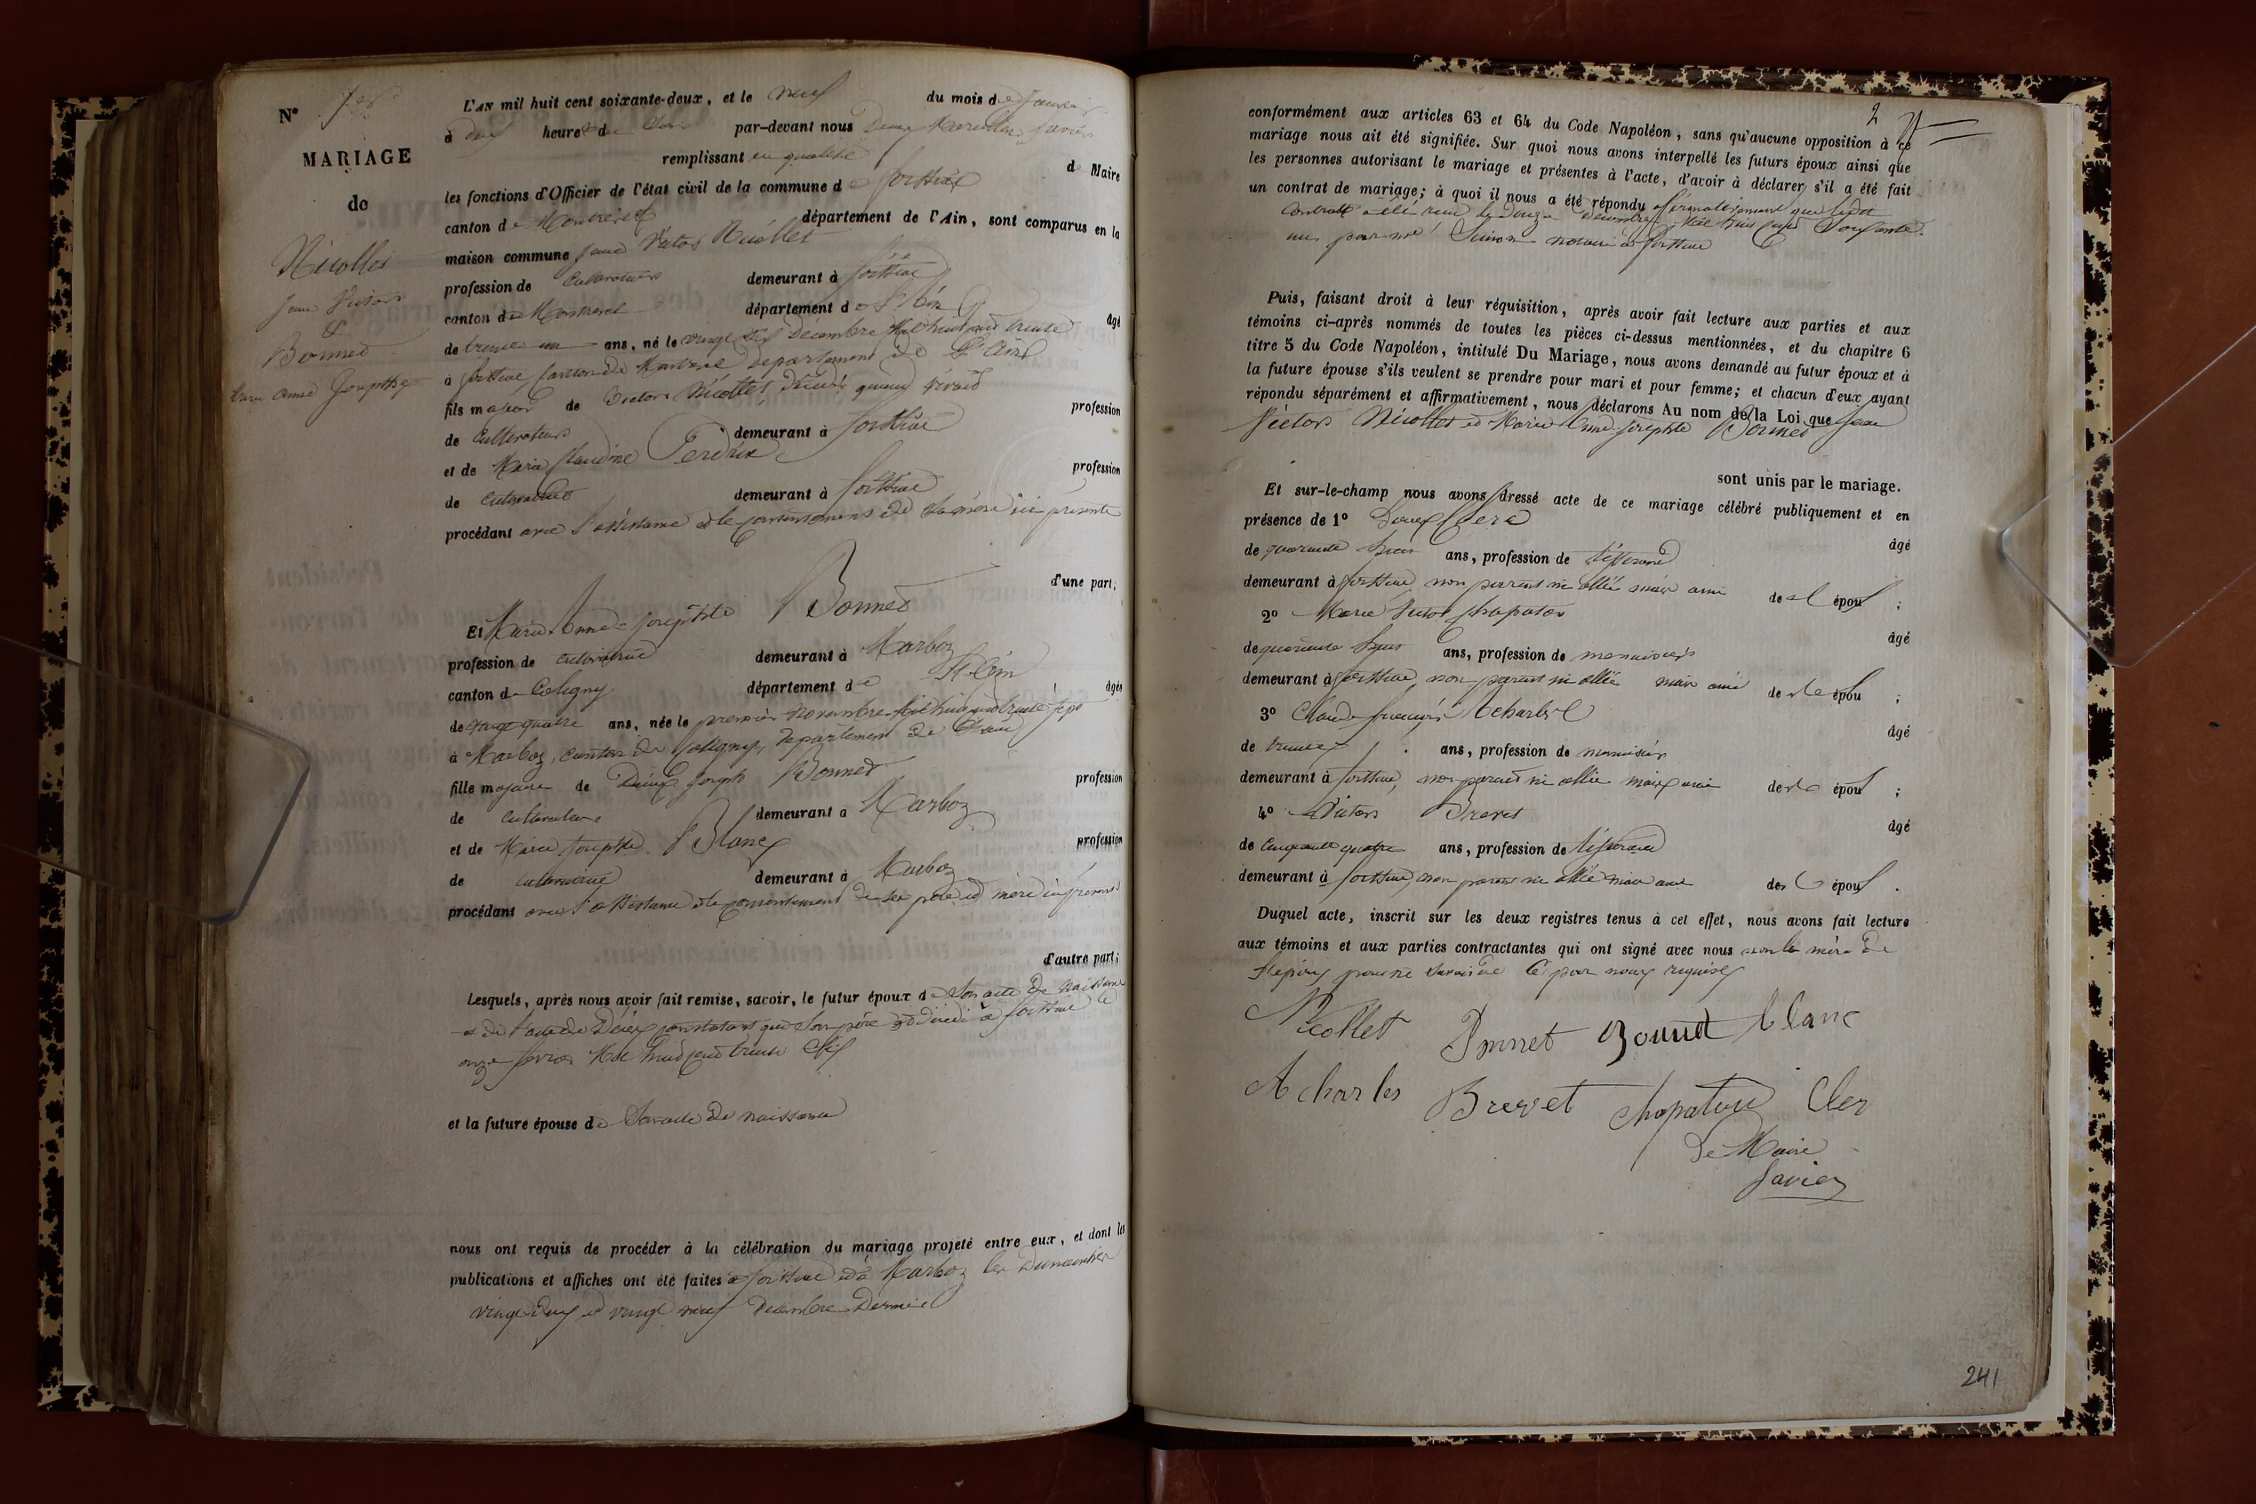 N° 1er
MARIAGE
de
Nicollet
Jean Victor
&
Bonnet
Marie Anne Josephte
L'AN mil huit cent soixante-deux, et le neuf du mois de Janvier
à dix heures du par-devant nous Javier
remplissant en qualité de Maire
les fonctions d'Officier de l'état civil de la commune de
canton de Montrevel département de l'Ain, sont comparus en la
maison commune Jean Victor Nicollet
profession de Cultivateur demeurant à
canton de Montrevel département de L'Ain âgé
de trente un ans, né le vingt six Décembre Mil huit cent trente
à canton de Montrevel département de L'Ain
fils majeur de Victor Nicollet, décédé quand vivait profession
de Cultivateur demeurant à
et de Marie Claudine Perdrix profession
de Cultivatrice demeurant à
procédant avec l'assistance et le consentement de sa mère ici présente
d'une part;
Et Marie Anne Josephte Bonnet
profession de cultivatrice demeurant à Marboz
canton de Coligny département de L'Ain âgée
de vingt quatre ans, née le premier Novembre Mil huit cent trente sept
à Marboz, canton de Coligny, département de L'Ain
fille majeure de Joseph Bonnet profession
de Cultivateur demeurant à Marboz
et de Marie Josephte Blanc profession
de Cultivatrice demeurant à Marboz
procédant avec l'assistance et le consentement de ses père et mère ici présents
d'autre part;
Lesquels, après nous avoir fait remise, savoir, le futur époux de Son acte de naissance
et de l'acte de Décès constatant que Son père est décédé à le
onze Mil huit cent trente Six
et la future épouse de Son acte de naissance
nous ont requis de procéder à la célébration du mariage projeté entre eux, et dont les
publications et affiches ont été faites à et à Marboz les Dimanches
vingt deux et vingt neuf Décembre Dernier
2
conformément aux articles 63 et 64 du Code Napoléon, sans qu'aucune opposition à ce
mariage nous ait été signifiée. Sur quoi nous avons interpellé les futurs époux ainsi que
les personnes autorisant le mariage et présentes à l'acte, d'avoir à déclarer s'il a été fait
un contrat de mariage; à quoi il nous a été répondu affirmativement que ledit
Contrat a été reçu le Douze Décembre Mil huit cent Soixante
un par me notaire à
Puis, faisant droit à leur réquisition, après avoir fait lecture aux parties et aux
témoins ci-après nommés de toutes les pièces ci-dessus mentionnées, et du chapitre 6
titre 5 du Code Napoléon, intitulé Du Mariage, nous avons demandé au futur époux et à
la future épouse s'ils veulent se prendre pour mari et pour femme; et chacun d'eux ayant
répondu séparément et affirmativement, nous déclarons Au nom de la Loi que Jean
Victor Nicollet et Marie Anne Josephte Bonnet
sont unis par le mariage.
Et sur-le-champ nous avons dressé acte de ce mariage célébré publiquement et en
présence de 1° Clerc
âgé
de quarante ans, profession de tisserand
demeurant à non parent ni allié mais ami de l'époux;
2° Marie Victor Chapatou
âgé
de quarante ans, profession de menuisier
demeurant à non parent ni allié mais ami de l'époux;
3° Claude François Acharles
âgé
de trente ans, profession de menuisier
demeurant à non parent ni allié mais ami de l'époux;
4° Victor Brevet
âgé
de Cinquante quatre ans, profession de tisserand
demeurant à non parent ni allié mais ami de l'époux.
Duquel acte, inscrit sur les deux registres tenus à cet effet, nous avons fait lecture
aux témoins et aux parties contractantes qui ont signé avec nous non la mère de
l'époux pour ne Savoir de ce par nous requise
Nicollet Bonnet Bonnet Blanc
Acharles Brevet Chapatou Cler
Le Maire
Javier
241